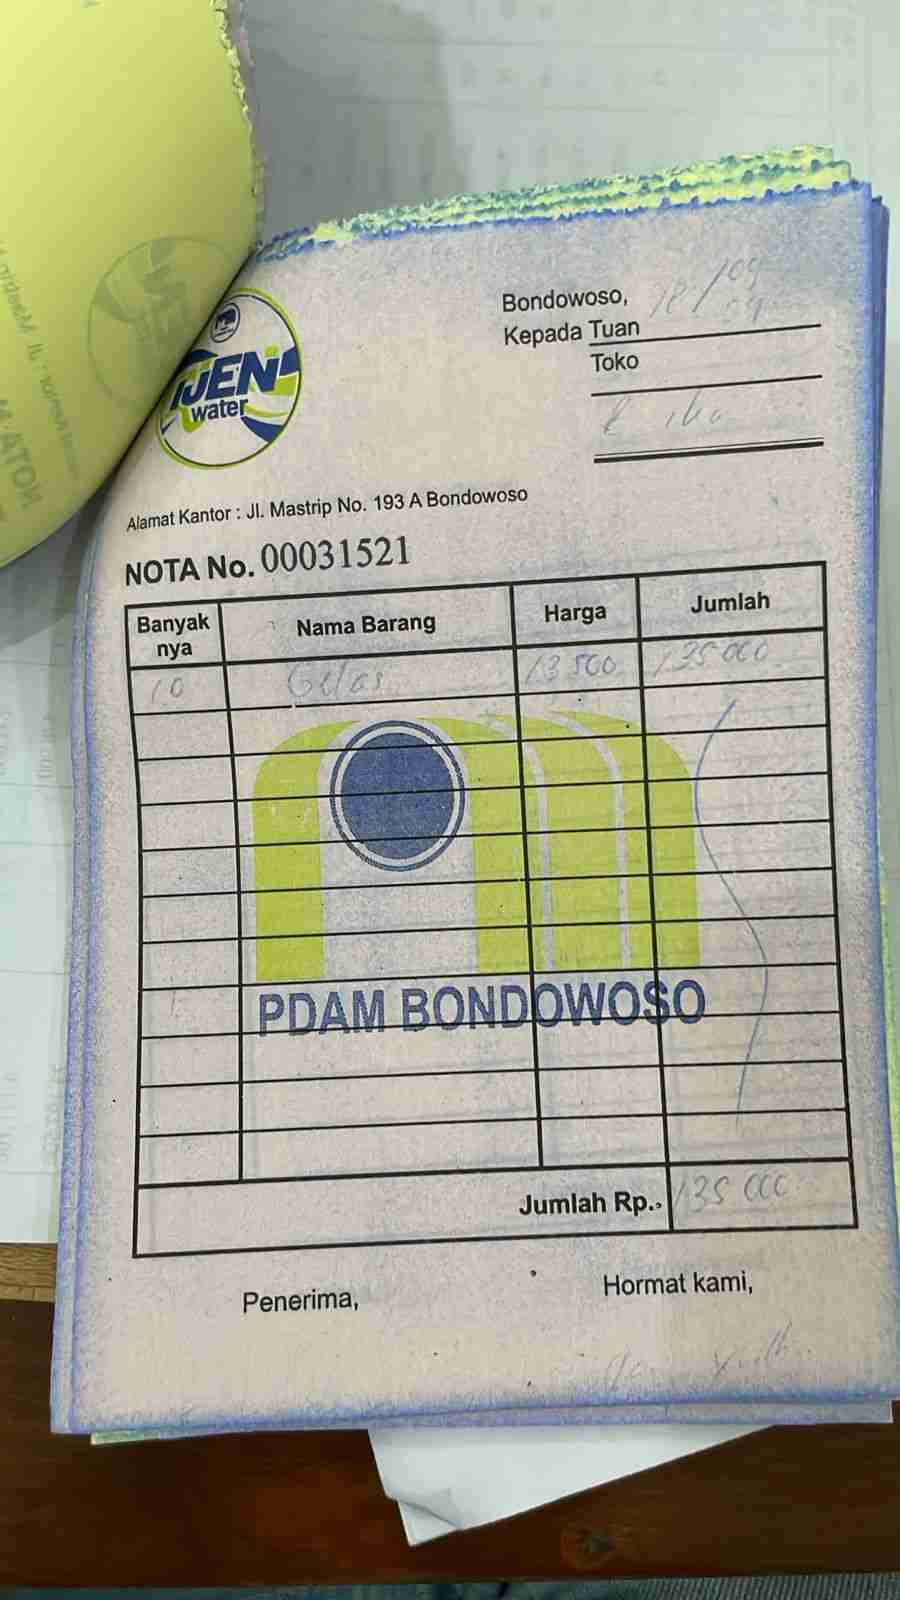 IJEN
water
Bondowoso,
Kepada Tuan
Toko
Alamat Kantor : Jl. Mastrip No. 193 A Bondowoso
NOTA No. 00031521
Banyak nya Nama Barang Harga Jumlah
10 Gelas 13 500 135 000
PDAM BONDOWOSO
Jumlah Rp., 135 000
Penerima, Hormat kami,